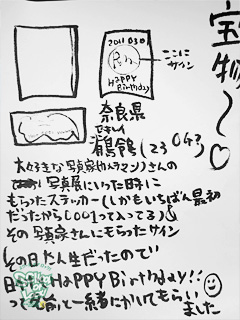 宝物〜♡
2011 03 01
Rin
HAPPY
Birthday
ここに
サイン
奈良県
鶺鴒(23
大好きな写真家(カメラマン)さんの
写真展にいった時に
もらったステッカー(しかもいちばん最初
だったから001って入ってる)&
その写真家さんにもらったサイン
その日たん生だったので
日付とHAPPY Birthday!!
って名前と一緒にかいてもらい
ました